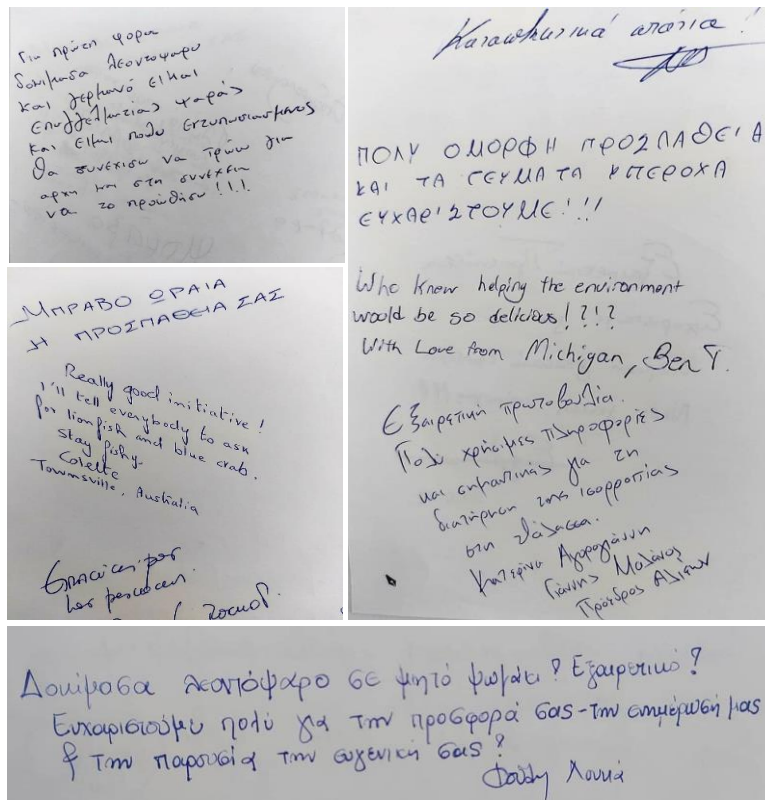 Για πρώτη φορα
δοκιμασα λεοντοψαρο
και γερμανό ειμαι
επαγγελματίας ψαράς
και ειμαι πολυ εντυπωσιασμενος
θα συνεχισω να τρώω για
αρχη και στη συνεχεια
να το προωθήσω!!!
ΜΠΡΑΒΟ ΩΡΑΙΑ
Η ΠΡΟΣΠΑΘΕΙΑ ΣΑΣ
Really good initiative!
I'll tell everybody to ask
for lionfish and blue crab.
Stay fishy.
Colette
Townsville, Australia
Gracias por
los pescados.
Καταπληκτικά
ΠΟΛΥ ΟΜΟΡΦΗ ΠΡΟΣΠΑΘΕΙΑ
ΚΑΙ ΤΑ ΓΕΥΜΑΤΑ ΥΠΕΡΟΧΑ
ΕΥΧΑΡΙΣΤΟΥΜΕ!!!
Who knew helping the environment
would be so delicious!?!?
With Love from Michigan, Ben T.
Εξαιρετική πρωτοβουλία.
Πολύ χρήσιμες πληροφορίες
και σημαντικές για τη
διατήρηση της ισορροπίας
στη θάλασσα.
Κατερίνα Αγορογιάννη
Γιάννης Μαλάνος
Πρόεδρος Αλιέων
Δοκίμασα λεοντόψαρο σε ψητό ψωμάκι? Εξαιρετικό?
Ευχαριστούμε πολύ για την προσφορά σας - την ενημέρωσή μας
& την παρουσία την ευγενική σας?
Λουκά